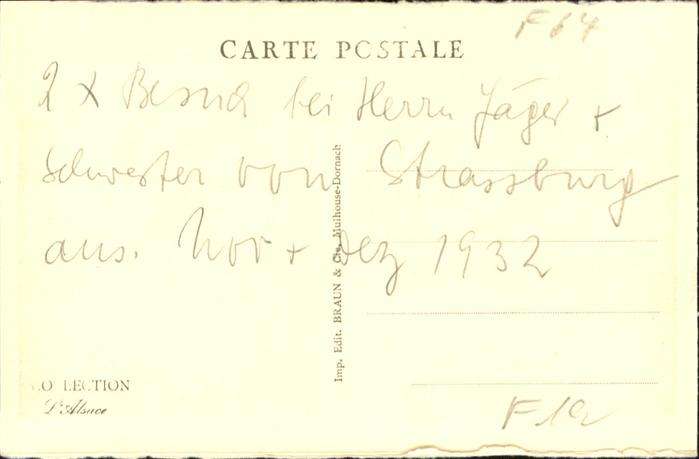 F 64
CARTE POSTALE
2 x Besuch bei Herrn Jäger +
Schwester von Strassburg
aus. Nov + Dez 1932
Imp. Edit. BRAUN & Cie, Mulhouse-Dornach
CO LECTION
L'Alsace
F 12